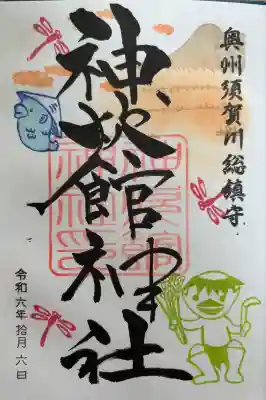 奥州須賀川総鎮守
神炊館神社
令和六年拾月六日